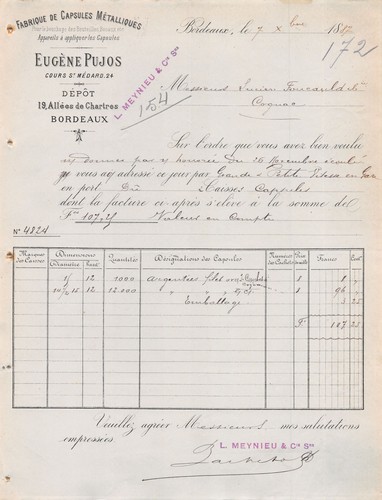 FABRIQUE DE CAPSULES MÉTALLIQUES
Pour le bouchage des Bouteilles, Bocaux etc
Appareils à appliquer les Capsules
EUGÈNE PUJOS
COURS ST MÉDARD, 24
DÉPÔT
19, Allées de Chartres
BORDEAUX
Bordeaux, le 7 Xbre 1887
172
L. MEYNIEU & Cie Srs
154
Messieurs Lucien Foucauld & Cie
Cognac
Sur l'ordre que vous avez bien voulu
donner par honorée du 26 Novembre écoulé
je vous ai adressé ce jour par Grande & Petite Vitesse en Gare
en port Dû Caisses Capsules
dont la facture ci après s'élève à la somme de
Frs 107,25 Valeur en Compte
No 4824
Marques des Caisses Dimensions Diamètre Haut. Quantités Désignations des Capsules Numéros des Cachets Prix du mille Francs Cent.
12 1000 argentées 1 8
12 12.000 " " 1 96
Emballage 3 25
F 107 25
Veuillez agréer Messieurs mes salutations
empressées
L. MEYNIEU & Cie Srs